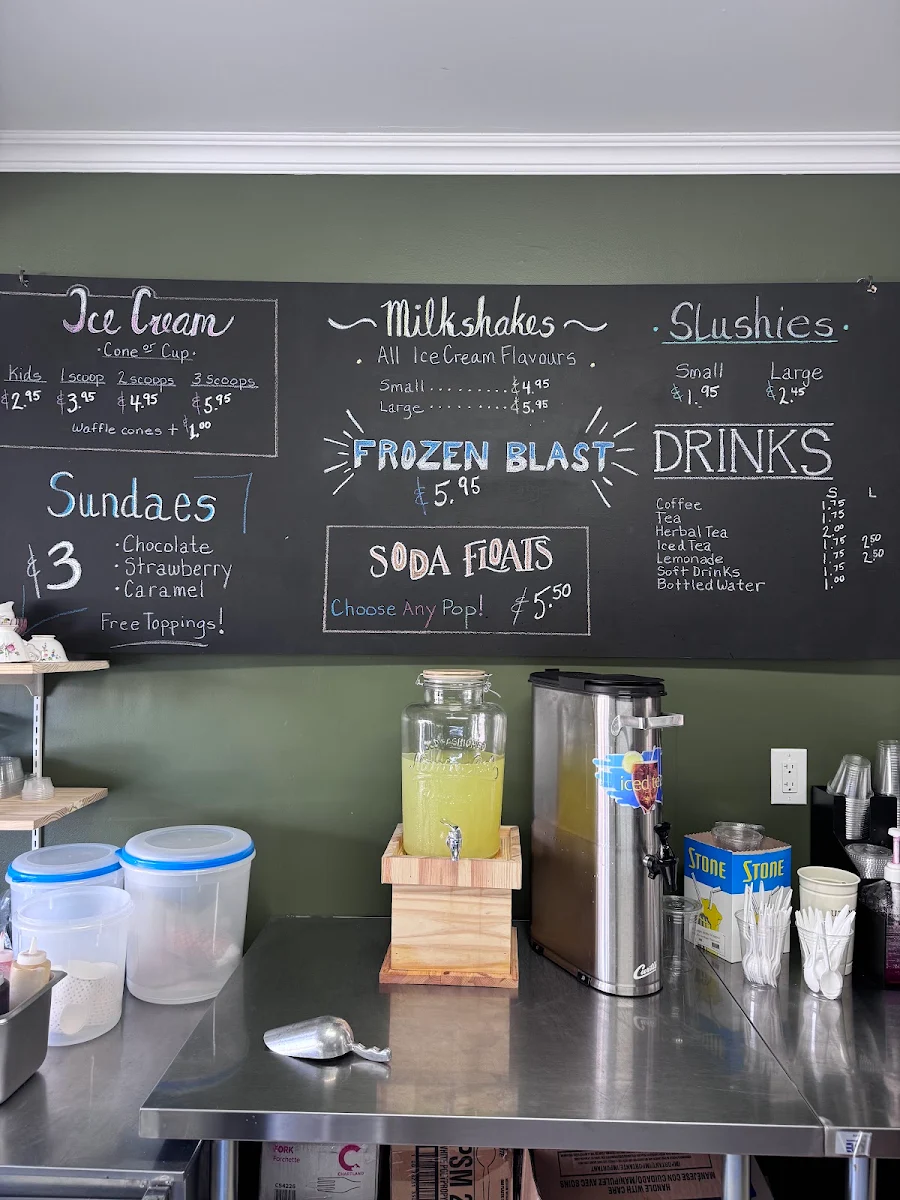 Ice Cream
·Cone or Cup·
Kids 1 scoop 2 scoops 3 scoops
¢2.95 ¢3.95 ¢4.95 ¢5.95
Waffle cones + $1.00
Sundaes
¢3
·Chocolate
·Strawberry
·Caramel
Free Toppings!
~Milkshakes~
· All Ice Cream Flavours ·
Small.........¢4.95
Large.........¢5.95
FROZEN BLAST
¢5.95
SODA FLOATS
Choose Any Pop! ¢5.50
·Slushies·
Small Large
¢1.95 ¢2.45
DRINKS
S L
Coffee 1.75
Tea 1.75
Herbal Tea 2.00
Iced Tea 1.75 2.50
Lemonade 1.75 2.50
Soft Drinks 1.75
Bottled Water 1.00
iced tea
STONE STONE
FORK
Forchette
HANDLE WITH CARE